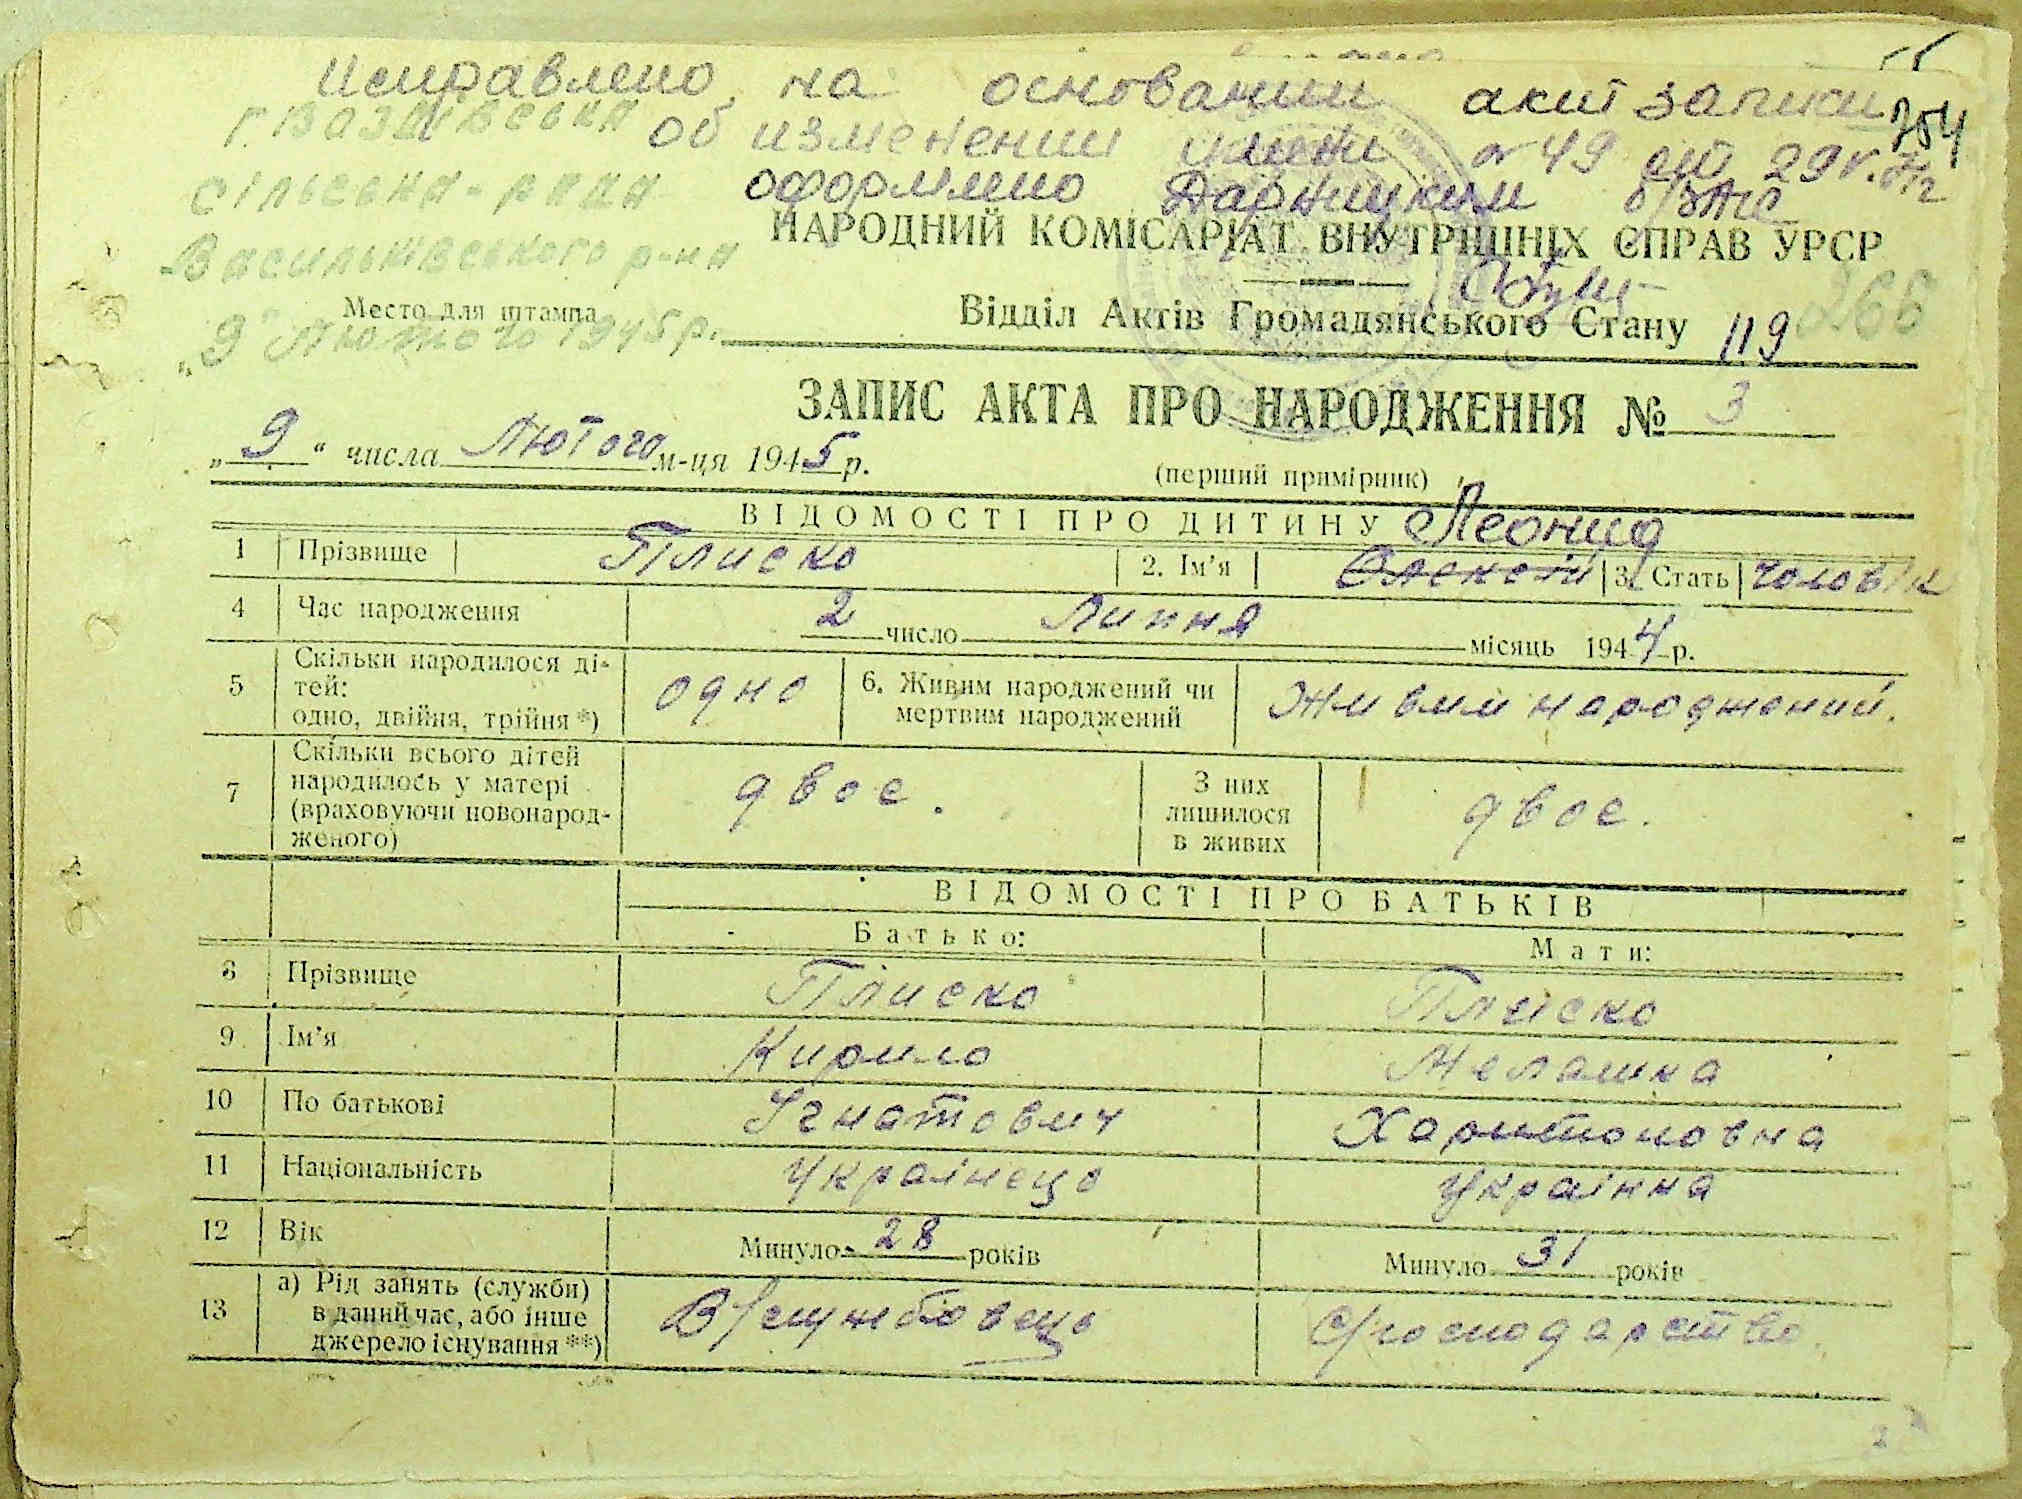 Исправлено на основании акт записи
об изменении имени № 49 от 29
оформлено Дарницким о/ЗАГС
754
сільська-рада
Васильківського р-на
Место для штампа
"9" Лютого 1945 р.
НАРОДНИЙ КОМІСАРІАТ ВНУТРІШНІХ СПРАВ УРСР
Відділ Актів Громадянського Стану 119 266
ЗАПИС АКТА ПРО НАРОДЖЕННЯ № 3
„9" числа Лютого м-ця 1945 р.
(перший примірник)
ВІДОМОСТІ ПРО ДИТИНУ Леонид
1 Прізвище Плиско 2. Ім'я Олексій 3. Стать чоловік
4 Час народження 2 число Липня місяць 1944 р.
5 Скільки народилося дітей: одно, двійня, трійня *) одно 6. Живим народжений чи мертвим народжений Живим народжений.
7 Скільки всього дітей народилось у матері (враховуючи новонародженого) двоє. З них лишилося в живих двоє.
ВІДОМОСТІ ПРО БАТЬКІВ
Батько: Мати:
8 Прізвище Плиско Плиско
9 Ім'я Кирило Мелашка
10 По батькові Ігнатович Харитоновна
11 Національність Українець Українка
12 Вік Минуло 28 років Минуло 31 років
13 а) Рід занять (служби) в даний час, або інше джерело існування **) В/службовець С/господарство